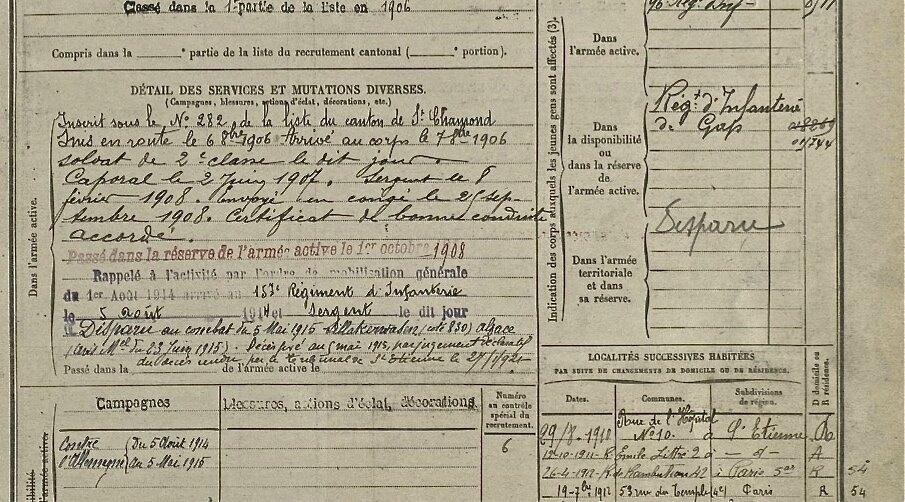 Classé dans la 1re partie de la liste en 1906
Compris dans la partie de la liste du recrutement cantonal ( portion).
DÉTAIL DES SERVICES ET MUTATIONS DIVERSES.
(Campagnes, blessures, actions d'éclat, décorations, etc.)
Inscrit sous le N° 282 de la liste du canton de St Chamond
Mis en route le 6 8bre 1906 Arrivé au corps le 7 8bre 1906
soldat de 2e classe le dit jour.
Caporal le 2 Juin 1907. Sergent le 8
février 1908. Envoyé en congé le 25 sep-
tembre 1908. Certificat de bonne conduite
accordé.
Passé dans la réserve de l'armée active le 1er octobre 1908
Rappelé à l'activité par l'ordre de mobilisation générale
du 1er Août 1914 arrivé au 157e Régiment d'Infanterie
le 5 août 1914 et sergent le dit jour
Disparu au combat du 5 Mai 1915 (côte 830) Alsace
(avis Mel du 23 Juin 1915). Décès fixé au 5 mai 1915, par jugement déclaratif
du décès rendu par le tribunal de St Etienne le
Passé dans l' armée active le
Dans l'armée active.
Campagnes
Blessures, actions d'éclat, décorations.
Numéro
au contrôle
spécial du
recrutement.
6
Contre
l'Allemagne
Du 5 Août 1914
au 5 Mai 1915
Indication des corps auxquels les jeunes gens sont affectés (3).
Dans
l'armée active.
Dans
la disponibilité
ou
dans la réserve
de
l'armée active.
Régt d'Infanterie
de Gap
Disparu
Dans l'armée
territoriale
et dans
sa réserve.
LOCALITÉS SUCCESSIVES HABITÉES
PAR SUITE DE CHANGEMENTS DE DOMICILE OU DE RÉSIDENCE.
D domicile ou
R résidence.
Dates.
Communes.
Subdivisions
de région.
29/8. 1910 Rue de l'Hôpital
N° 10. à St Etienne R
12-10-1911 R. Emile Littré 2 à — d° — A
26-4-1912 R. de Rambuteau 42 à Paris 3ar R 54
19-7bre 1912 53 rue du Temple (4e) Paris R 54